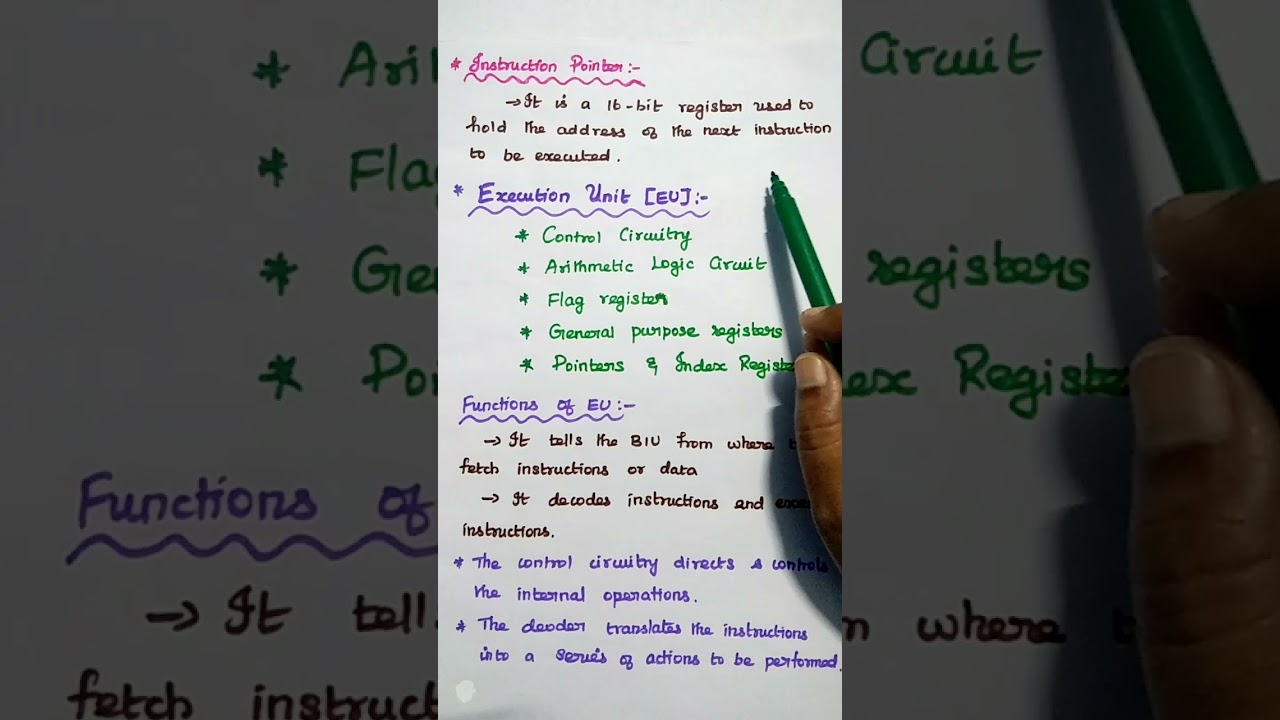 * Instruction Pointer:-
→ It is a 16-bit register used to
hold the address of the next instruction
to be executed.
* Execution Unit [EU]:-
* Control Circuitry
* Arithmetic Logic Circuit
* Flag register
* General purpose registers
* Pointers & Index Registe
Functions of EU:-
→ It tells the BIU from where t
fetch instructions or data
→ It decodes instructions and exe
instructions.
* The control circuitry directs & controls
the internal operations.
* The decoder translates the instructions
into a series of actions to be performed.